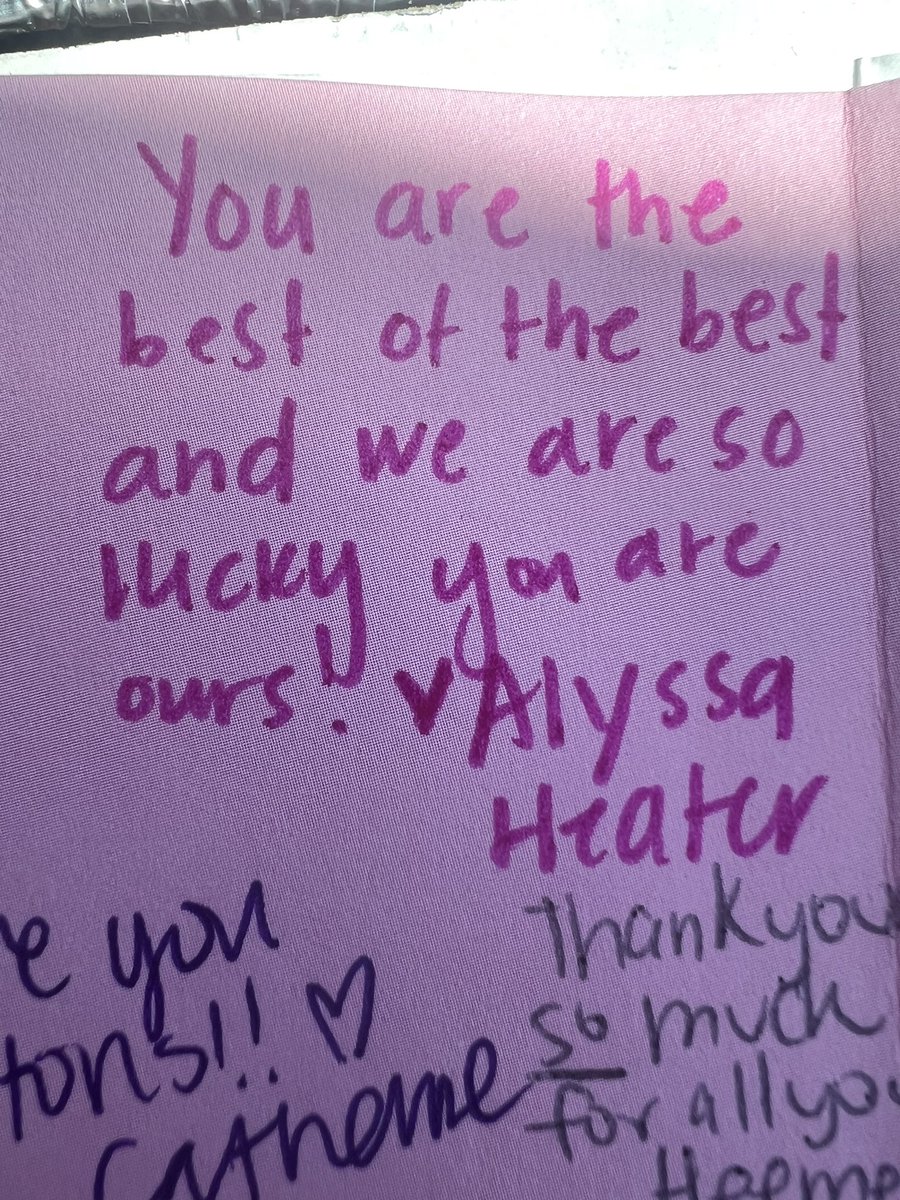 You are the
best of the best
and we are so
lucky you are
ours! ♥ Alyssa
Heater
you
tons!! ♡
Thank you
so much
for all you